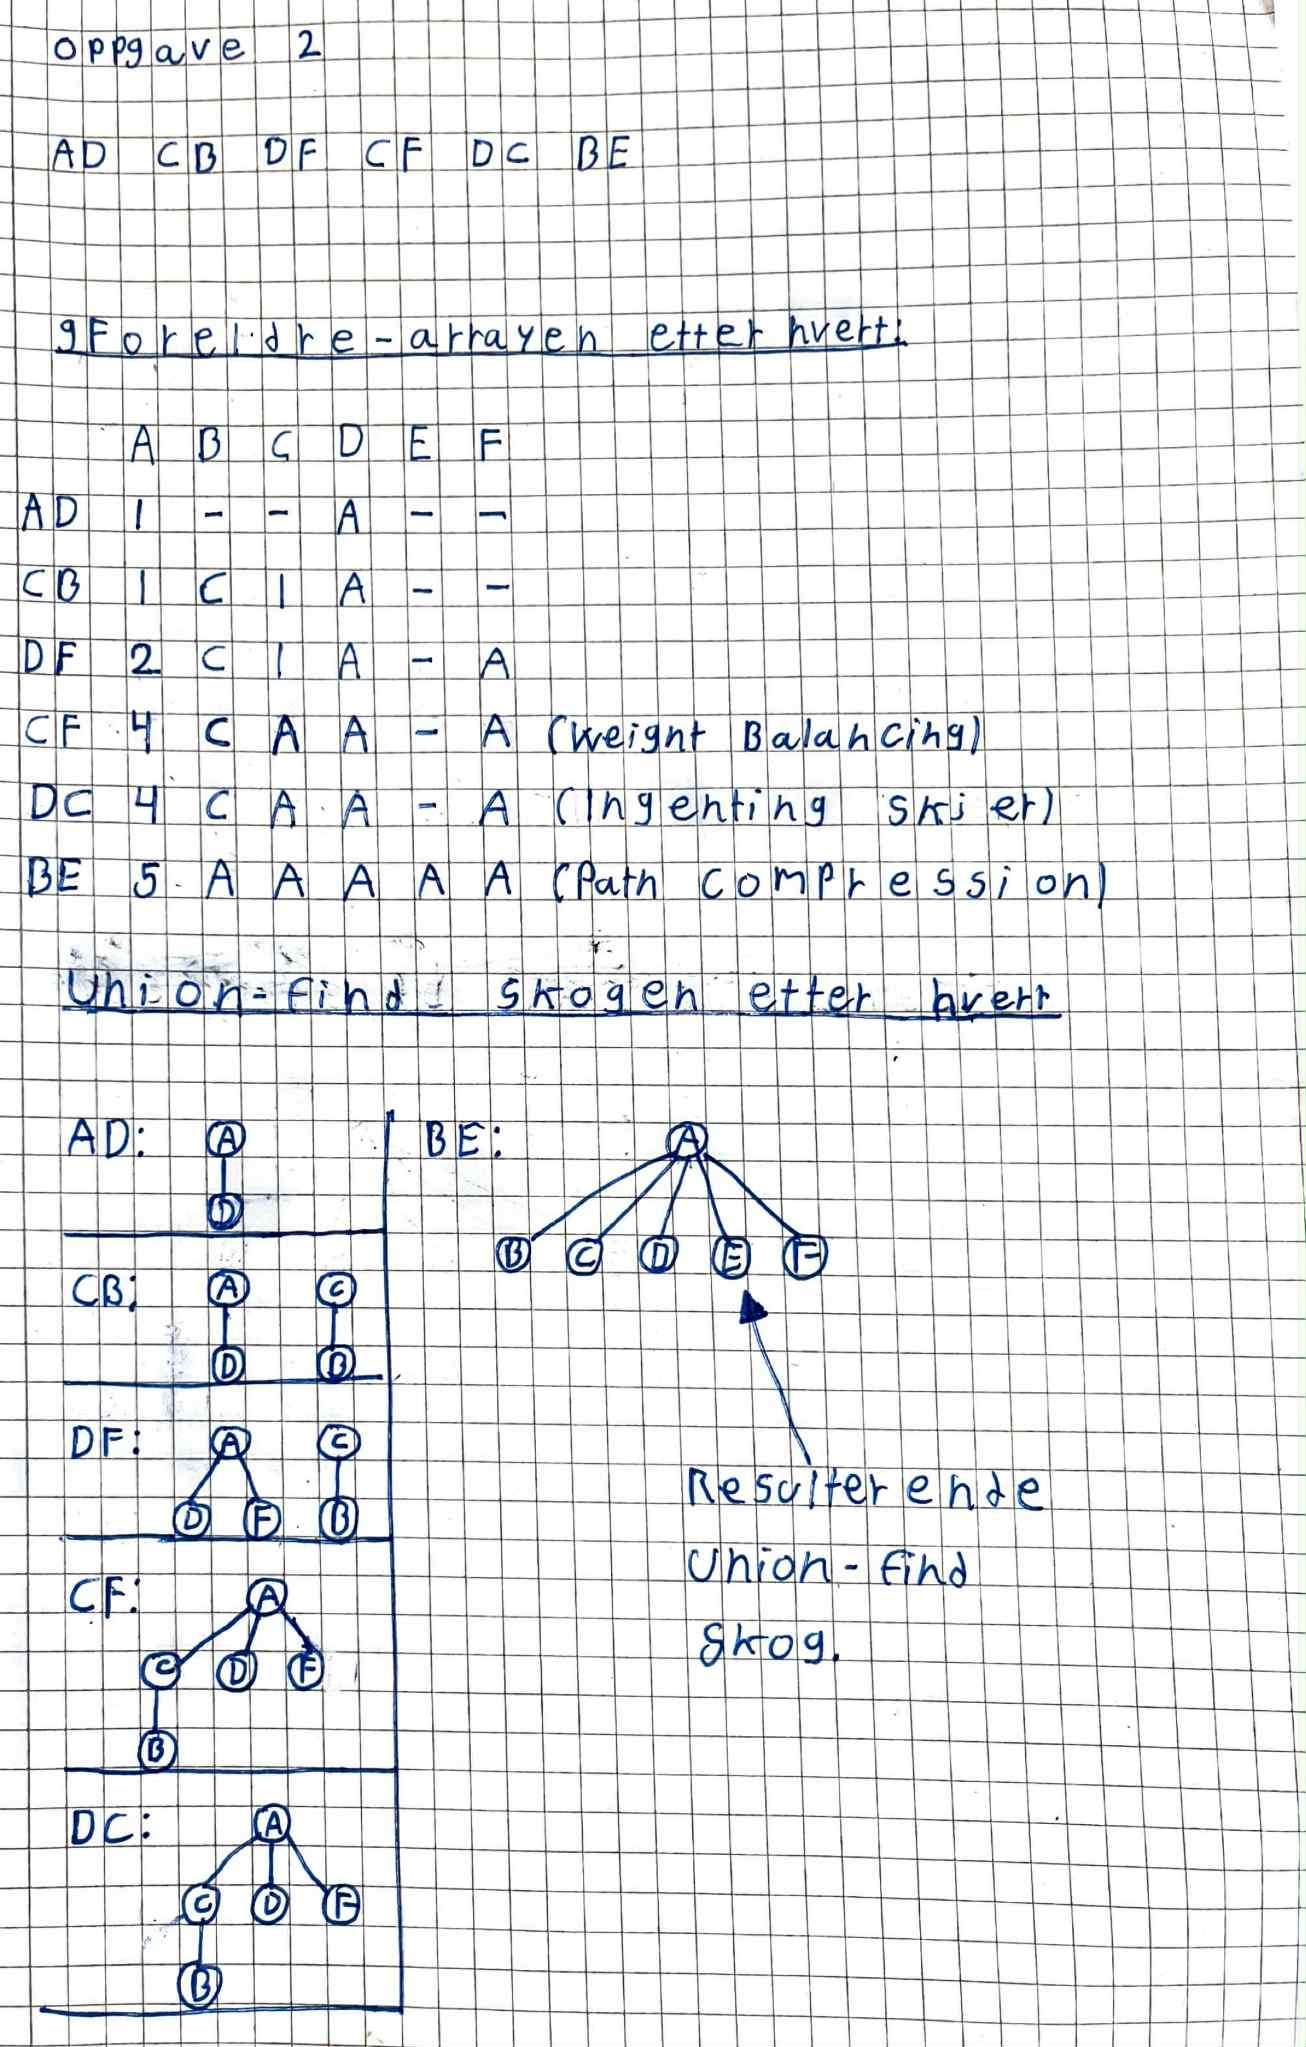 Oppgave 2
AD CB DF CF DC BE
gForeldre-arrayen etter hvert:
A B C D E F
AD 1 - - A - -
CB 1 C 1 A - -
DF 2 C 1 A - A
CF 4 C A A - A (Weight Balancing)
DC 4 C A A - A (Ingenting skjer)
BE 5 A A A A A (Path compression)
Union-find: skogen etter hvert
AD: A
D
CB: A C
D B
DF: A C
D F B
CF: A
C D F
B
DC: A
C D F
B
BE: A
B C D E F
Resulterende
Union-find
skog.